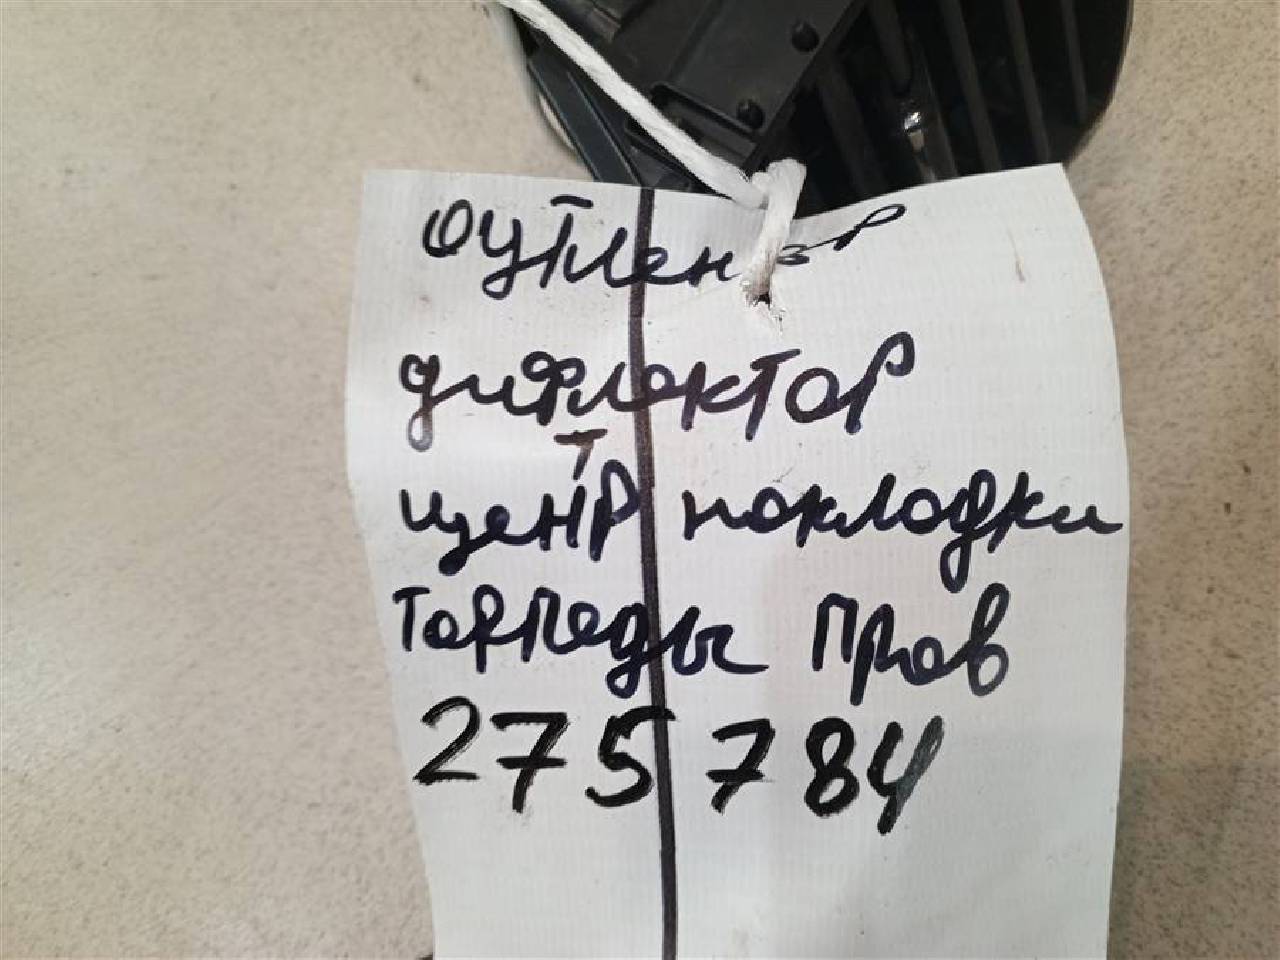 Оутлендер
дифлектор
центр накладки
торпеды прав
275784